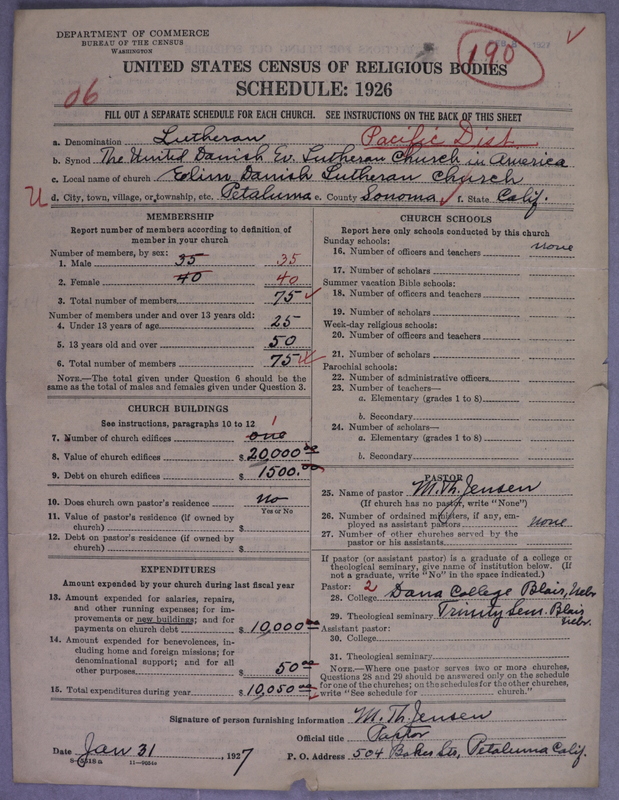 DEPARTMENT OF COMMERCE
BUREAU OF THE CENSUS
WASHINGTON
1927
190
UNITED STATES CENSUS OF RELIGIOUS BODIES
SCHEDULE: 1926
06
FILL OUT A SEPARATE SCHEDULE FOR EACH CHURCH. SEE INSTRUCTIONS ON THE BACK OF THIS SHEET
a. Denomination Lutheran Pacific Dist.
b. Synod The United Danish Ev. Lutheran Church in America
c. Local name of church Elim Danish Lutheran church
U d. City, town, village, or township, etc. Petaluma e. County Sonoma f. State Calif.
MEMBERSHIP
Report number of members according to definition of
member in your church
Number of members, by sex:
1. Male 35 35
2. Female 40 40
3. Total number of members 75
Number of members under and over 13 years old:
4. Under 13 years of age 25
5. 13 years old and over 50
6. Total number of members 75
NOTE.—The total given under Question 6 should be
same as the total of males and females given under Question 3.
CHURCH BUILDINGS
See instructions, paragraphs 10 to 12
7. Number of church edifices one 1
8. Value of church edifices $ 20000 00
9. Debt on church edifices $ 1500.00
10. Does church own pastor's residence no
Yes or No
11. Value of pastor's residence (if owned by
church) $
12. Debt on pastor's residence (if owned by
church) $
EXPENDITURES
Amount expended by your church during last fiscal year
13. Amount expended for salaries, repairs,
and other running expenses; for im-
provements or new buildings; and for
payments on church debt $ 10,000 00
14. Amount expended for benevolences, in-
cluding home and foreign missions; for
denominational support; and for all
other purposes $ 50 00
15. Total expenditures during year $ 10,050 00
CHURCH SCHOOLS
Report here only schools conducted by this church
Sunday schools:
16. Number of officers and teachers none
17. Number of scholars
Summer vacation Bible schools:
18. Number of officers and teachers
19. Number of scholars
Week-day religious schools:
20. Number of officers and teachers
21. Number of scholars
Parochial schools:
22. Number of administrative officers
23. Number of teachers—
a. Elementary (grades 1 to 8)
b. Secondary
24. Number of scholars—
a. Elementary (grades 1 to 8)
b. Secondary
PASTOR
25. Name of pastor M. Th. Jensen
(If church has no pastor, write "None")
26. Number of ordained ministers, if any, em-
ployed as assistant pastors none
27. Number of other churches served by the
pastor or his assistants
If pastor (or assistant pastor) is a graduate of a college or
theological seminary, give name of institution below. (If
not a graduate, write "No" in the space indicated.)
Pastor: 2
28. College Dana College Blair, Nebr
29. Theological seminary Trinity Sem. Blair
Nebr.
Assistant pastor:
30. College
31. Theological seminary
NOTE.—Where one pastor serves two or more churches,
Questions 28 and 29 should be answered only on the schedule
for one of the churches; on the schedules for the other churches,
write "See schedule for church."
Signature of person furnishing information M. Th. Jensen
Official title Pastor
Date Jan 31, 1927
P. O. Address 504 Baker Str, Petaluma Calif.